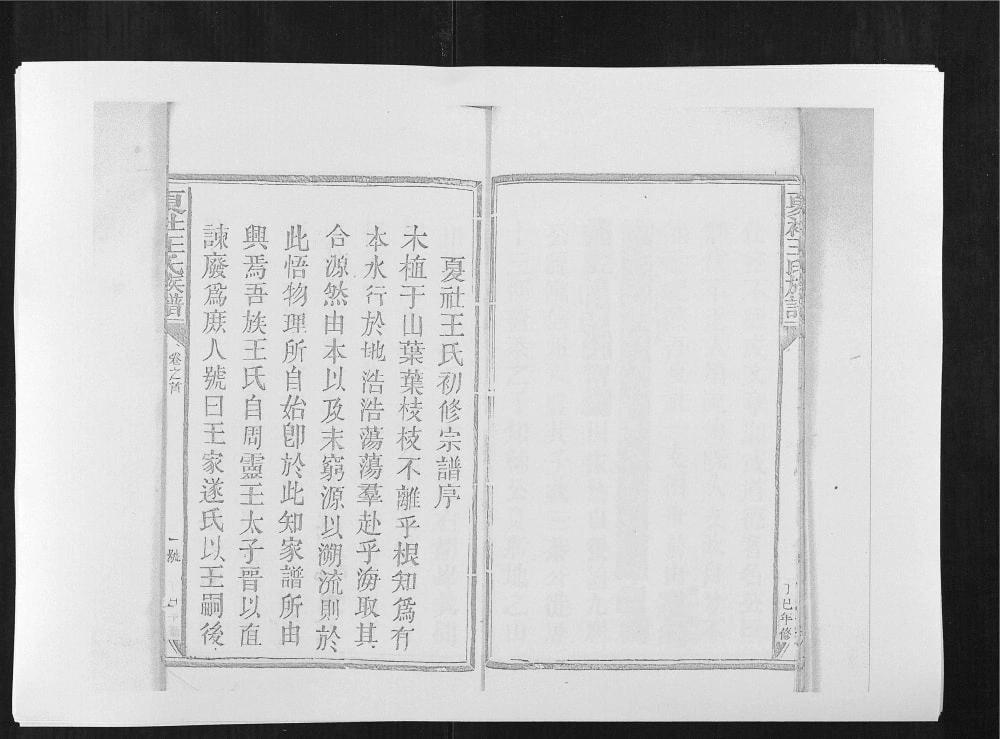 夏社王氏族譜
丁巳年修
夏社王氏初修宗譜序
木植于山葉葉枝枝不離乎根知為有
本水行於地浩浩蕩蕩羣赴乎海取其
合源然由本以及末窮源以溯流則於
此悟物理所自始卽於此知家譜所由
興焉吾族王氏自周靈王太子晉以直
諫廢爲庶人號曰王家遂氏以王嗣後
夏社王氏族譜
卷之首
一號